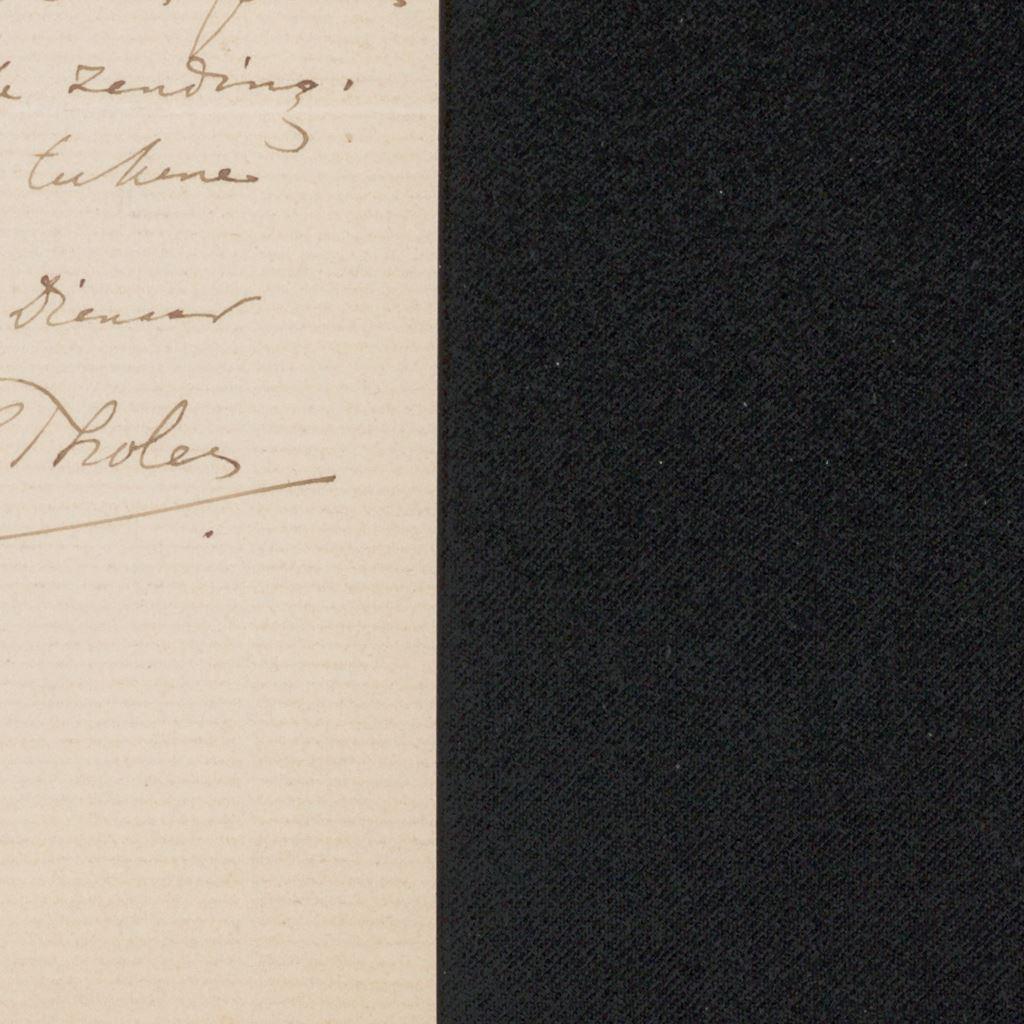 zending.
tekene
Dienaar
Tholen